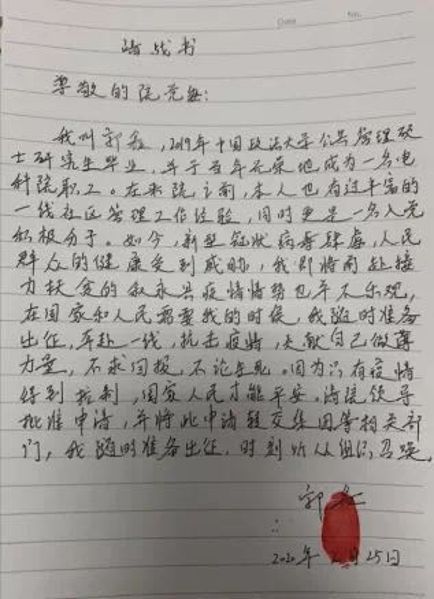 Date
No.
请战书
尊敬的院党委:
我叫郭，2019年中国政法大学公共管理硕
士研究生毕业，并于当年光荣地成为一名电
科院职工。在来院之前，本人也有过丰富的
一线社区管理工作经验，同时更是一名入党
积极分子。如今，新型冠状病毒肆虐，人民
群众的健康受到威胁，我即将前赴接
力扶贫的叙永县疫情情势也并不乐观，
在国家和人民需要我的时候，我随时准备
出征，奔赴一线，抗击疫情，贡献自己微薄
力量，不求回报，不论生死。因为只有疫情
得到控制，国家人民才能平安。请院领导
批准申请，并将此申请转交集团等相关部
门，我随时准备出征，时刻听从组织召唤。
郭
2020年 月25日